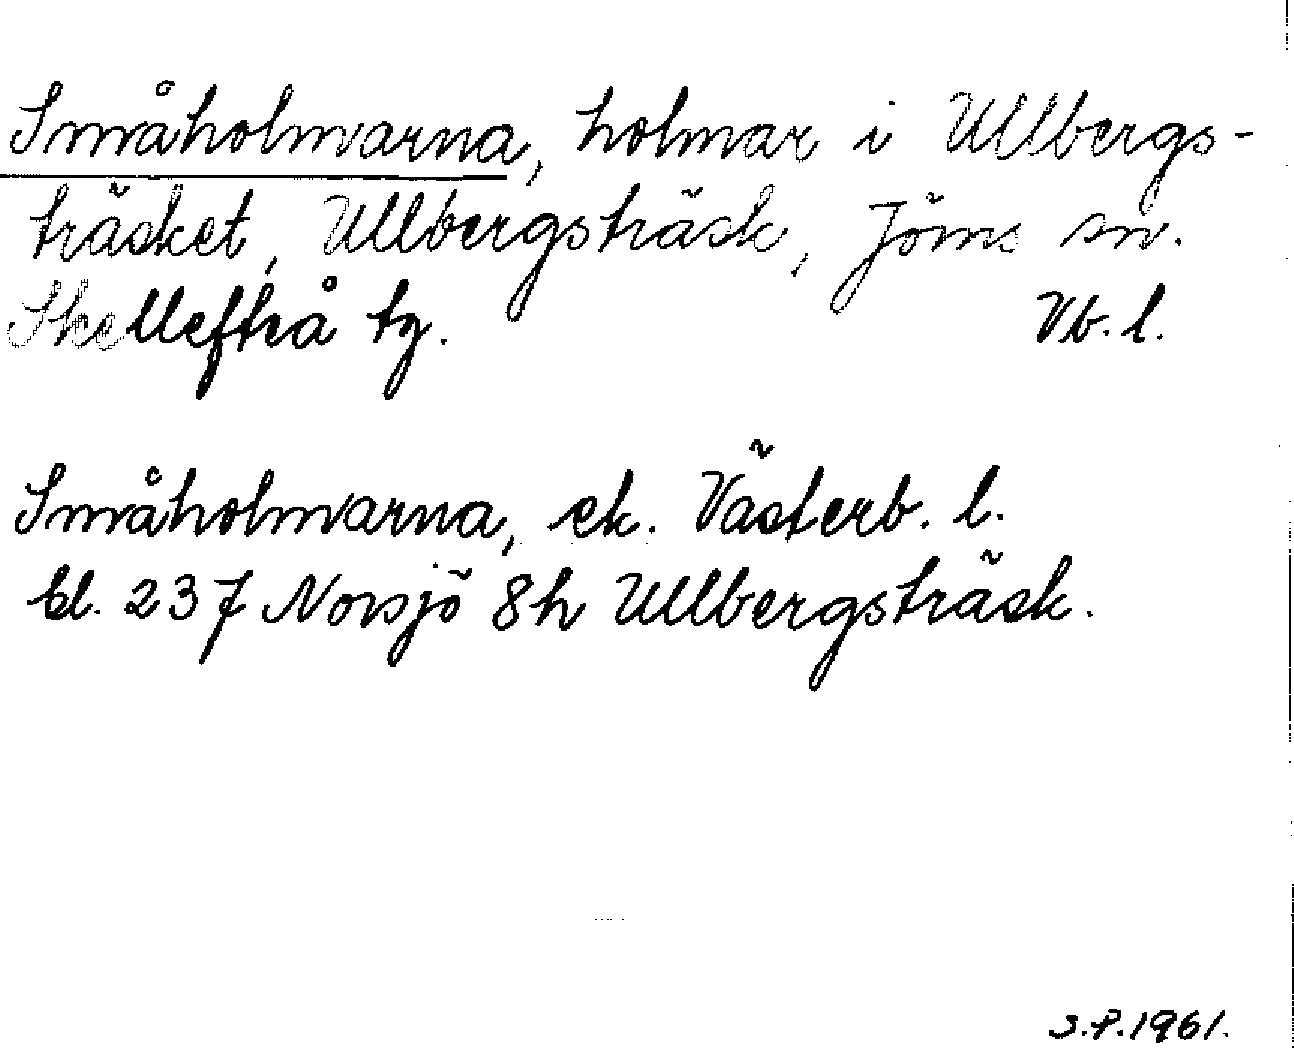 Småholmarna, holmar i Ullbergs-
träsket, Ullbergsträsk, Jörns sn.
Skellefteå tg. Vb. l.
Småholmarna, ek. Västerb. l.
bl. 237 Norsjö 8h Ullbergsträsk.
S.P. 1961.